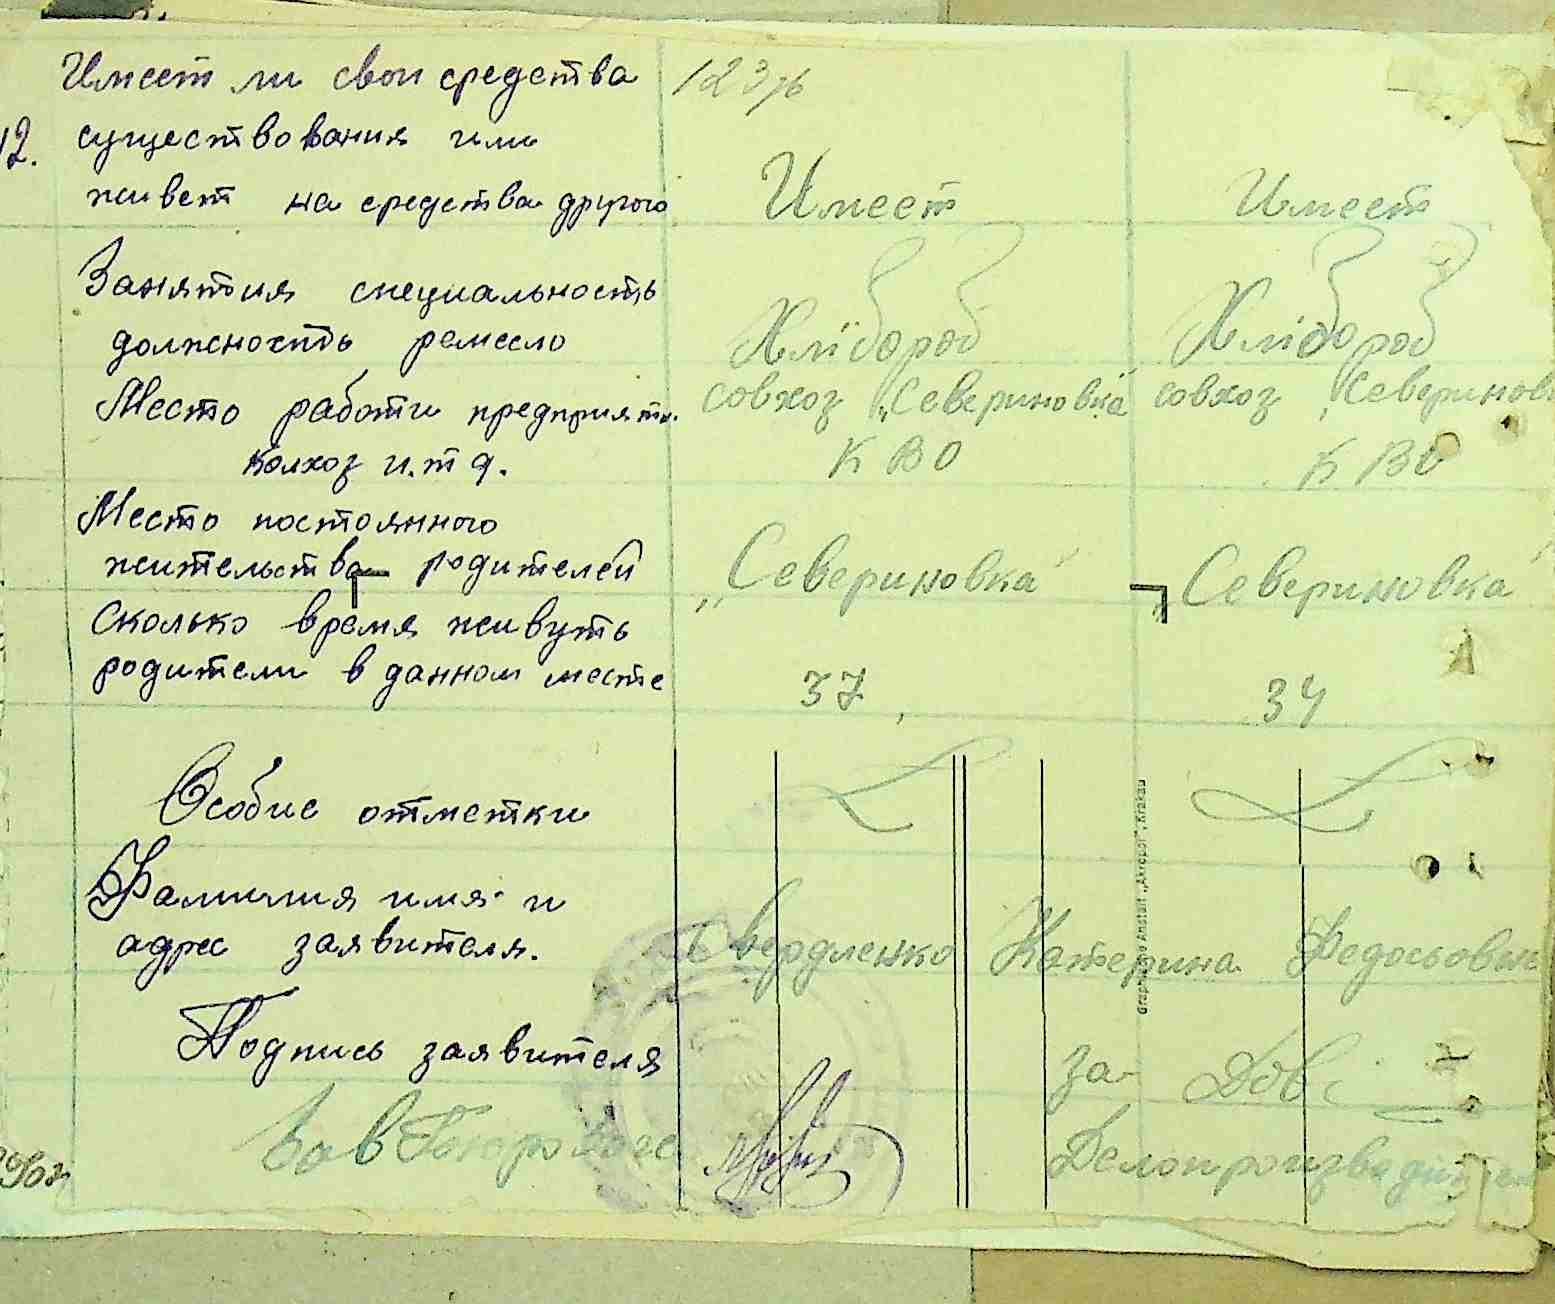 Имеет ли свои средства
12. существования или
живет на средства другого Имеет Имеет
Занятия специальность
должность ремесло Хлібороб Хлібороб
Место работи предприяти. совхоз „Севериновка" совхоз „Севериновк
колхоз и.т д. К В О К В О
Место постоянного
жительства родителей „Севериновка" „Севериновка"
Сколько время живуть
родители в данном месте 37 34
Особие отметки
Фамилия имя и
адрес заявителя. Твердленко Катерина Федосьовна
Подпись заявителя За-
Делопроизводитель
Graphische Anstalt „Akropol", Krakau